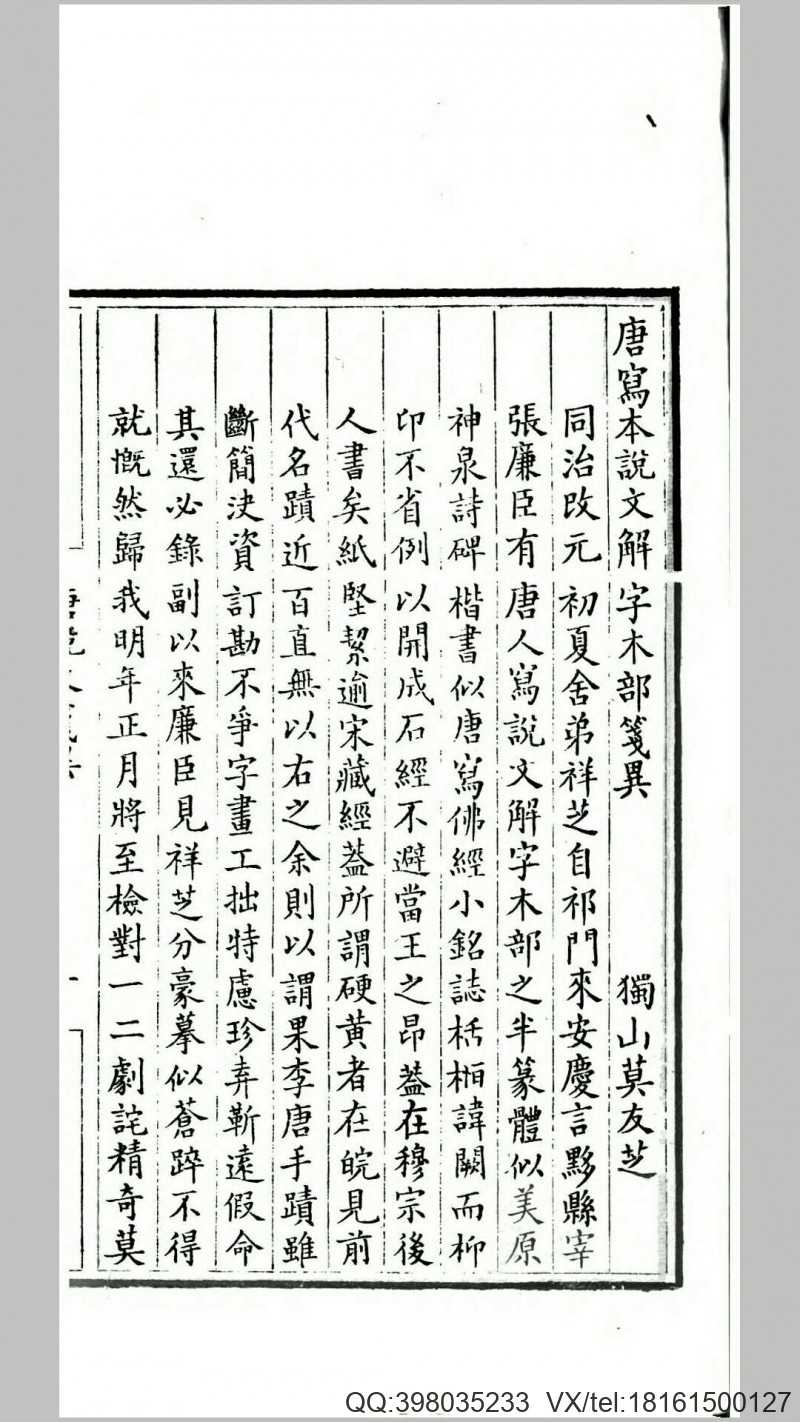 唐寫本說文解字木部箋異　獨山莫友芝
同治改元初夏舍弟祥芝自祁門來安慶言黟縣宰
張廉臣有唐人寫說文解字木部之半篆體似美原
神泉詩碑楷書似唐寫佛經小銘誌栝桓諱闕而柳
卬不省例以開成石經不避當王之昂蓋在穆宗後
人書矣紙堅絜逾宋藏經蓋所謂硬黄者在皖見前
代名蹟近百直無以右之余則以謂果李唐手蹟雖
斷簡決資訂勘不爭字畫工拙特慮珍弆靳遠假命
其還必錄副以來廉臣見祥芝分豪摹似蒼踤不得
就慨然歸我明年正月將至檢對一二劇詫精奇莫
QQ:398035233 VX/tel:18161500127